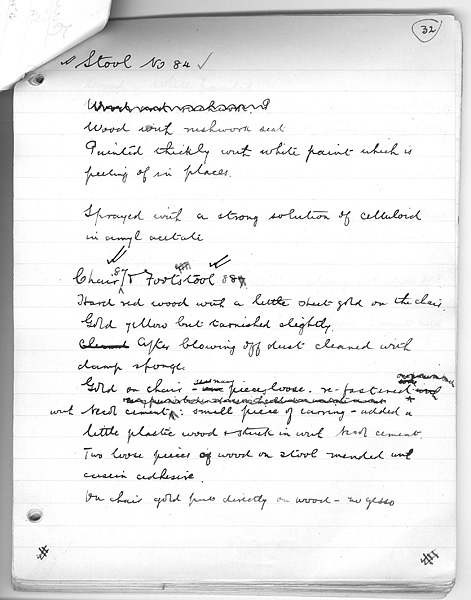 32
Stool No 84 ✓
Wood with rushwork seat
Painted thickly with white paint which is
peeling of in places.
Sprayed with a strong solution of celluloid
in amyl acetate
Chair 87 & Footstool 88
Hard red wood with a little sheet gold on the chair.
Gold yellow but tarnished slightly.
After blowing off dust cleaned with
damp sponge.
Gold on chair - piece loose. re-fastened
with Necol cement: small piece of carving - added a
little plastic wood & stuck in with Necol cement.
Two loose pieces of wood on stool mended with
casein adhesive.
On chair gold put directly on wood - no gesso